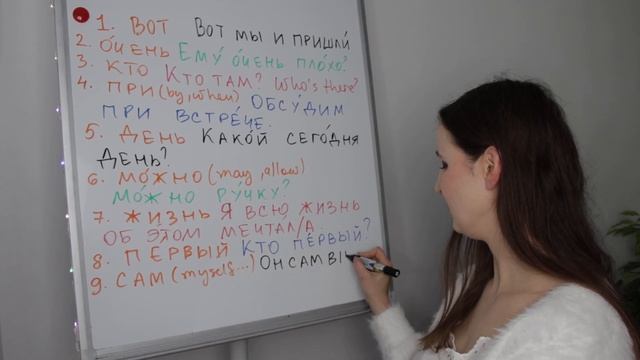 1. ВОТ Вот мы и пришли́
2. О́ЧЕНЬ Ему́ о́чень пло́хо?
3. КТО Кто там? Who's there?
4. ПРИ (by, when) Обсу́дим
при встре́че.
5. ДЕНЬ Како́й сего́дня
день?
6. МО́ЖНО (may, allow)
Мо́жно ру́чку?
7. ЖИЗНЬ Я всю жизнь
об этом мечтал/а.
8. ПЕРВЫЙ Кто пе́рвый?
9. САМ (myself...) Он сам